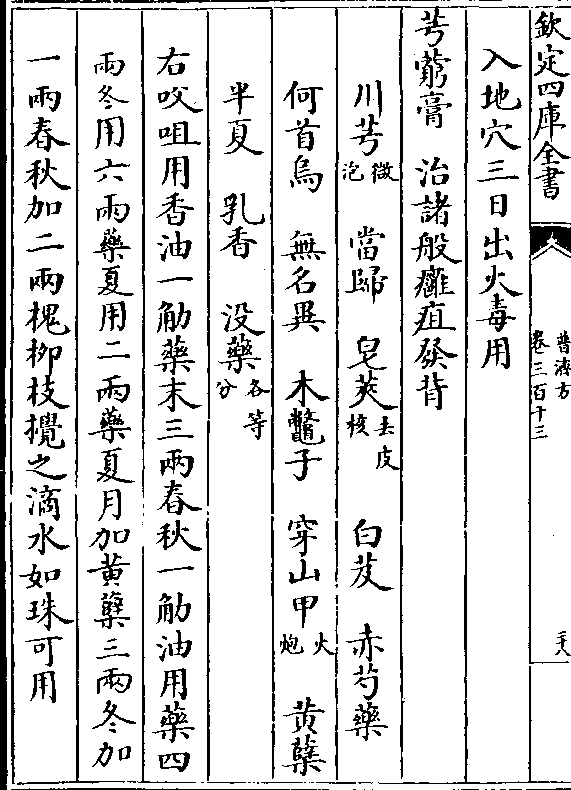 欽定四庫全書
普濟方
卷三百十三
三八
入地穴三日出火毒用
芎藭膏　治諸般癰疽發背
川芎微泡　當歸　皂莢去皮核　白芨　赤芍藥
何首烏　無名異　木鼈子　穿山甲火炮　黄蘗
半夏　乳香　没藥各等分
右㕮咀用香油一觔藥末三兩春秋一觔油用藥四
兩冬用六兩藥夏用二兩藥夏月加黄蘗三兩冬加
一兩春秋加二兩槐栁枝攪之滴水如珠可用